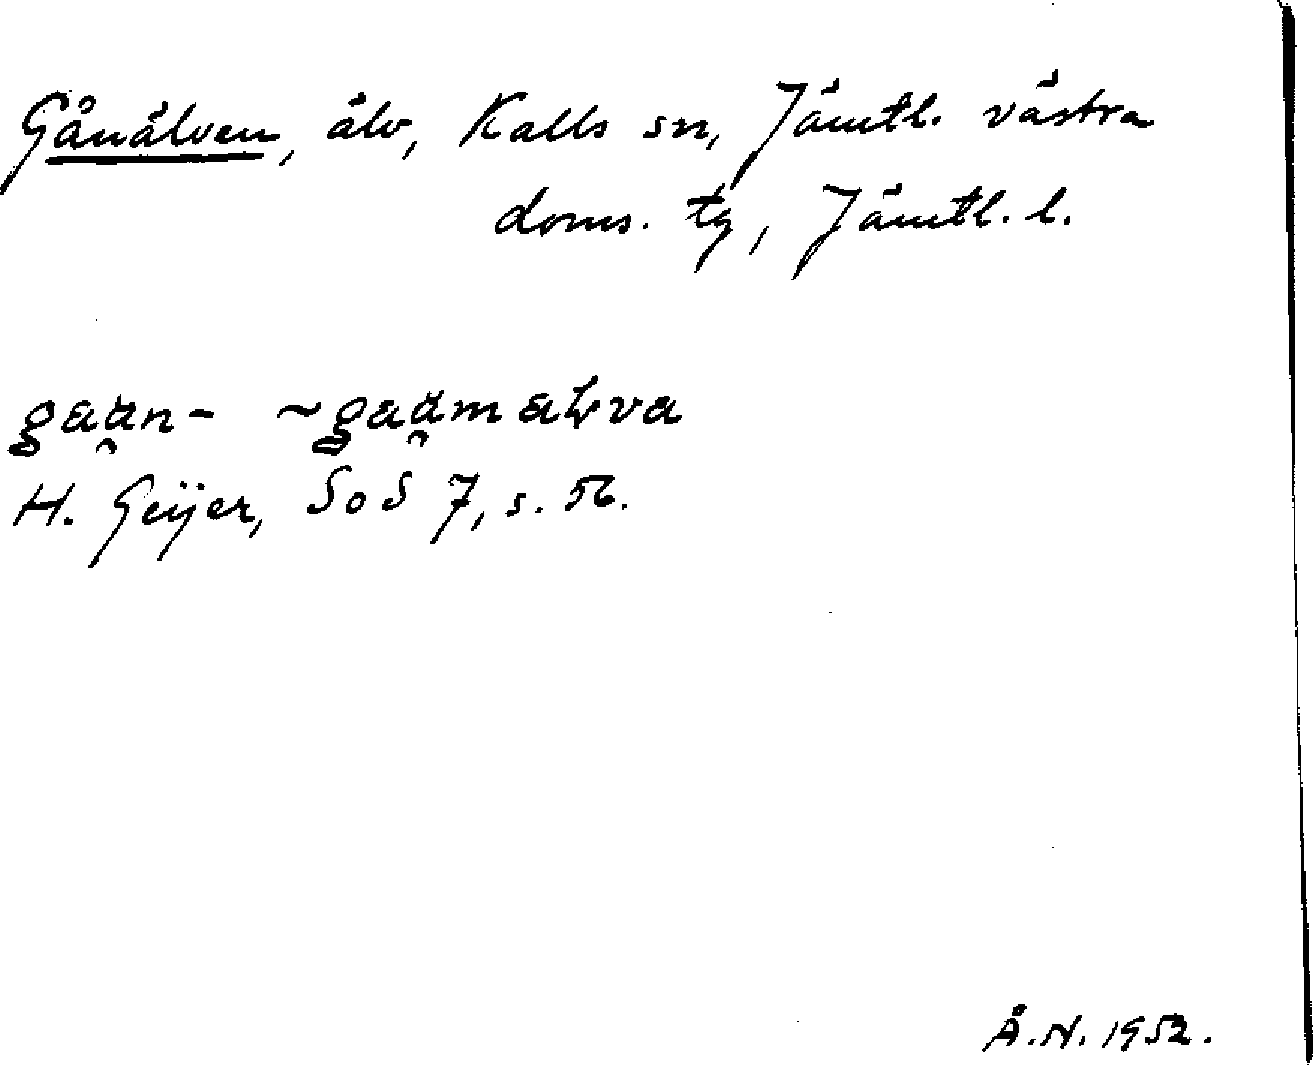 Gånälven, älv, Kalls sn, Jämtl. västra
doms. tg, Jämtl. l.
H. Geijer, SoS 7, s. 56.
Å.N. 1952.